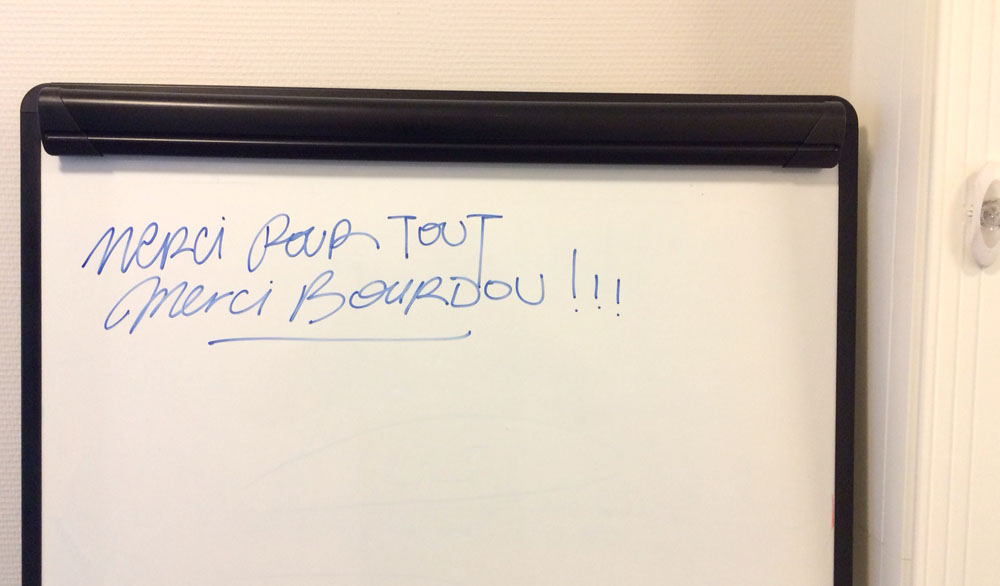 Merci POUR TOUT
Merci BOURDOU !!!